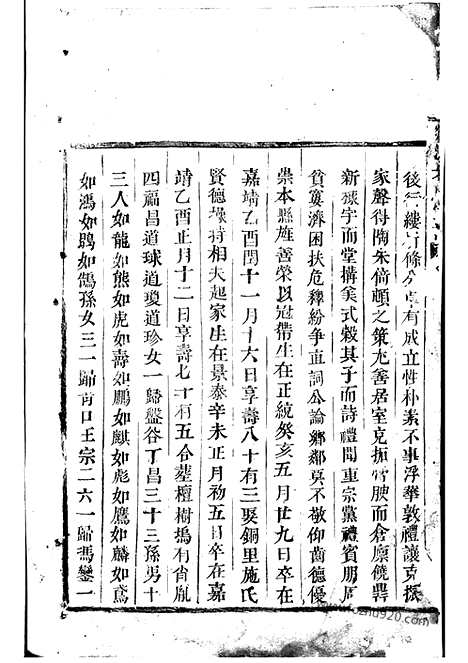 後行縷有條分卓有成立性朴素不事浮華敦禮讓克振
家聲得陶朱倚頓之策尤善居室克振膏腴而倉廪饒羨
新椽宇而堂構美式穀其子而詩禮聞重宗黨禮賓朋周
貧寠濟困扶危釋紛爭直詞公論鄉鄰莫不敬仰齒德優
崇本縣旌善榮以冠帶生在正統癸亥五月廿九日卒在
嘉靖乙酉閏十一月十六日享壽八十有三娶銅里施氏
賢德操持相夫起家生在景泰辛未正月初五日卒在嘉
靖乙酉正月十二日享壽七十有五合塟檀樹塢有胤
四福昌道球道瓊道珍女一歸盤谷丁昌三十三孫男十
三人如龍如熊如虎如壽如鵬如麒如彪如鷹如麟如鳶
如鴻如鶚如鵠孫女三一歸前口王宗二六一歸馮鑾一